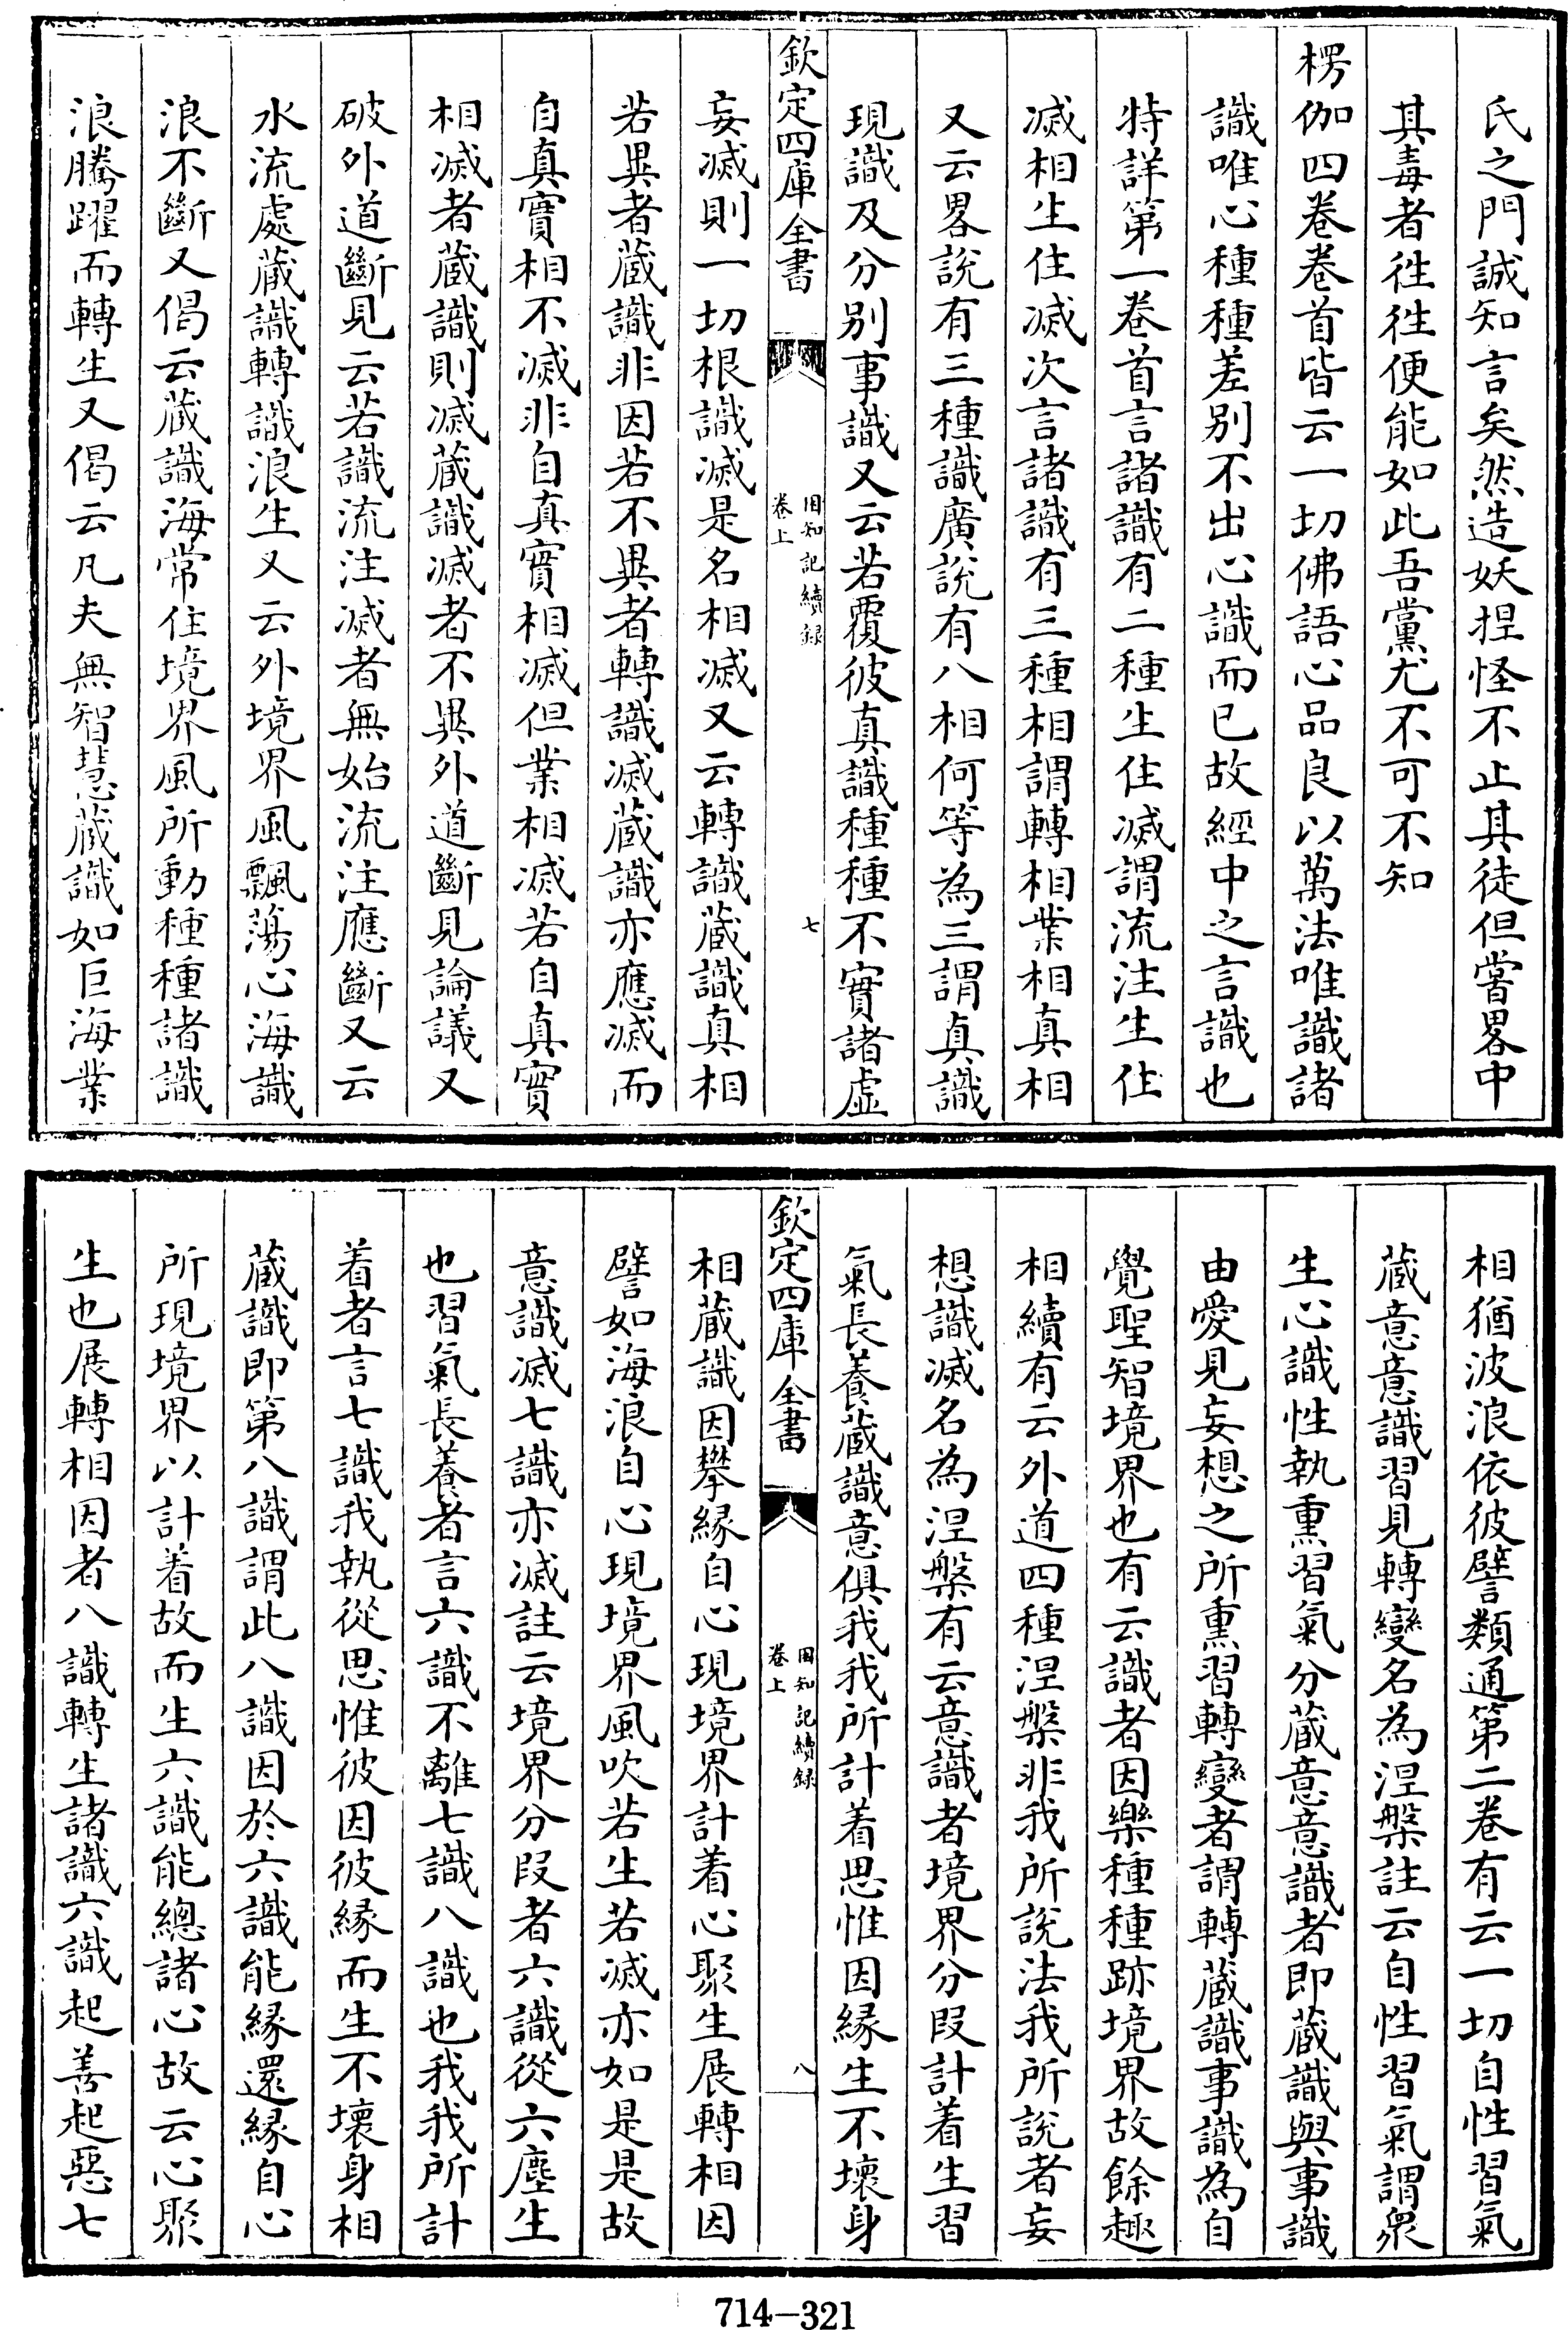 氏之門誠知言矣然造妖捏怪不止其徒但嘗畧中
其毒者徃徃便能如此吾黨尤不可不知
楞伽四卷卷首皆云一切佛語心品良以萬法唯識諸
識唯心種種差别不出心識而已故經中之言識也
特詳第一卷首言諸識有二種生住滅謂流注生住
滅相生住滅次言諸識有三種相謂轉相業相真相
又云畧說有三種識廣說有八相何等為三謂真識
現識及分别事識又云若覆彼真識種種不實諸虚
欽定四庫全書
困知記續録
卷上
七
妄滅則一切根識滅是名相滅又云轉識蔵識真相
若異者蔵識非因若不異者轉識滅蔵識亦應滅而
自真實相不滅非自真實相滅但業相滅若自真實
相滅者蔵識則滅蔵識滅者不異外道斷見論議又
破外道斷見云若識流注滅者無始流注應斷又云
水流處蔵識轉識浪生又云外境界風飄蕩心海識
浪不斷又偈云蔵識海常住境界風所動種種諸識
浪騰躍而轉生又偈云凡夫無智慧蔵識如巨海業
相猶波浪依彼譬類通第二卷有云一切自性習氣
蔵意意識習見轉變名為涅槃註云自性習氣謂衆
生心識性執熏習氣分蔵意意識者即蔵識與事識
由愛見妄想之所熏習轉變者謂轉蔵識事識為自
覺聖智境界也有云識者因樂種種跡境界故餘趣
相續有云外道四種涅槃非我所說法我所說者妄
想識滅名為涅槃有云意識者境界分段計着生習
氣長養蔵識意俱我我所計着思惟因緣生不壞身
欽定四庫全書
困知記續録
卷上
八
相蔵識因攀緣自心現境界計着心聚生展轉相因
譬如海浪自心現境界風吹若生若滅亦如是是故
意識滅七識亦滅註云境界分段者六識從六塵生
也習氣長養者言六識不離七識八識也我我所計
着者言七識我執從思惟彼因彼緣而生不壞身相
蔵識即第八識謂此八識因於六識能緣還緣自心
所現境界以計着故而生六識能總諸心故云心聚
生也展轉相因者八識轉生諸識六識起善起惡七
714-321